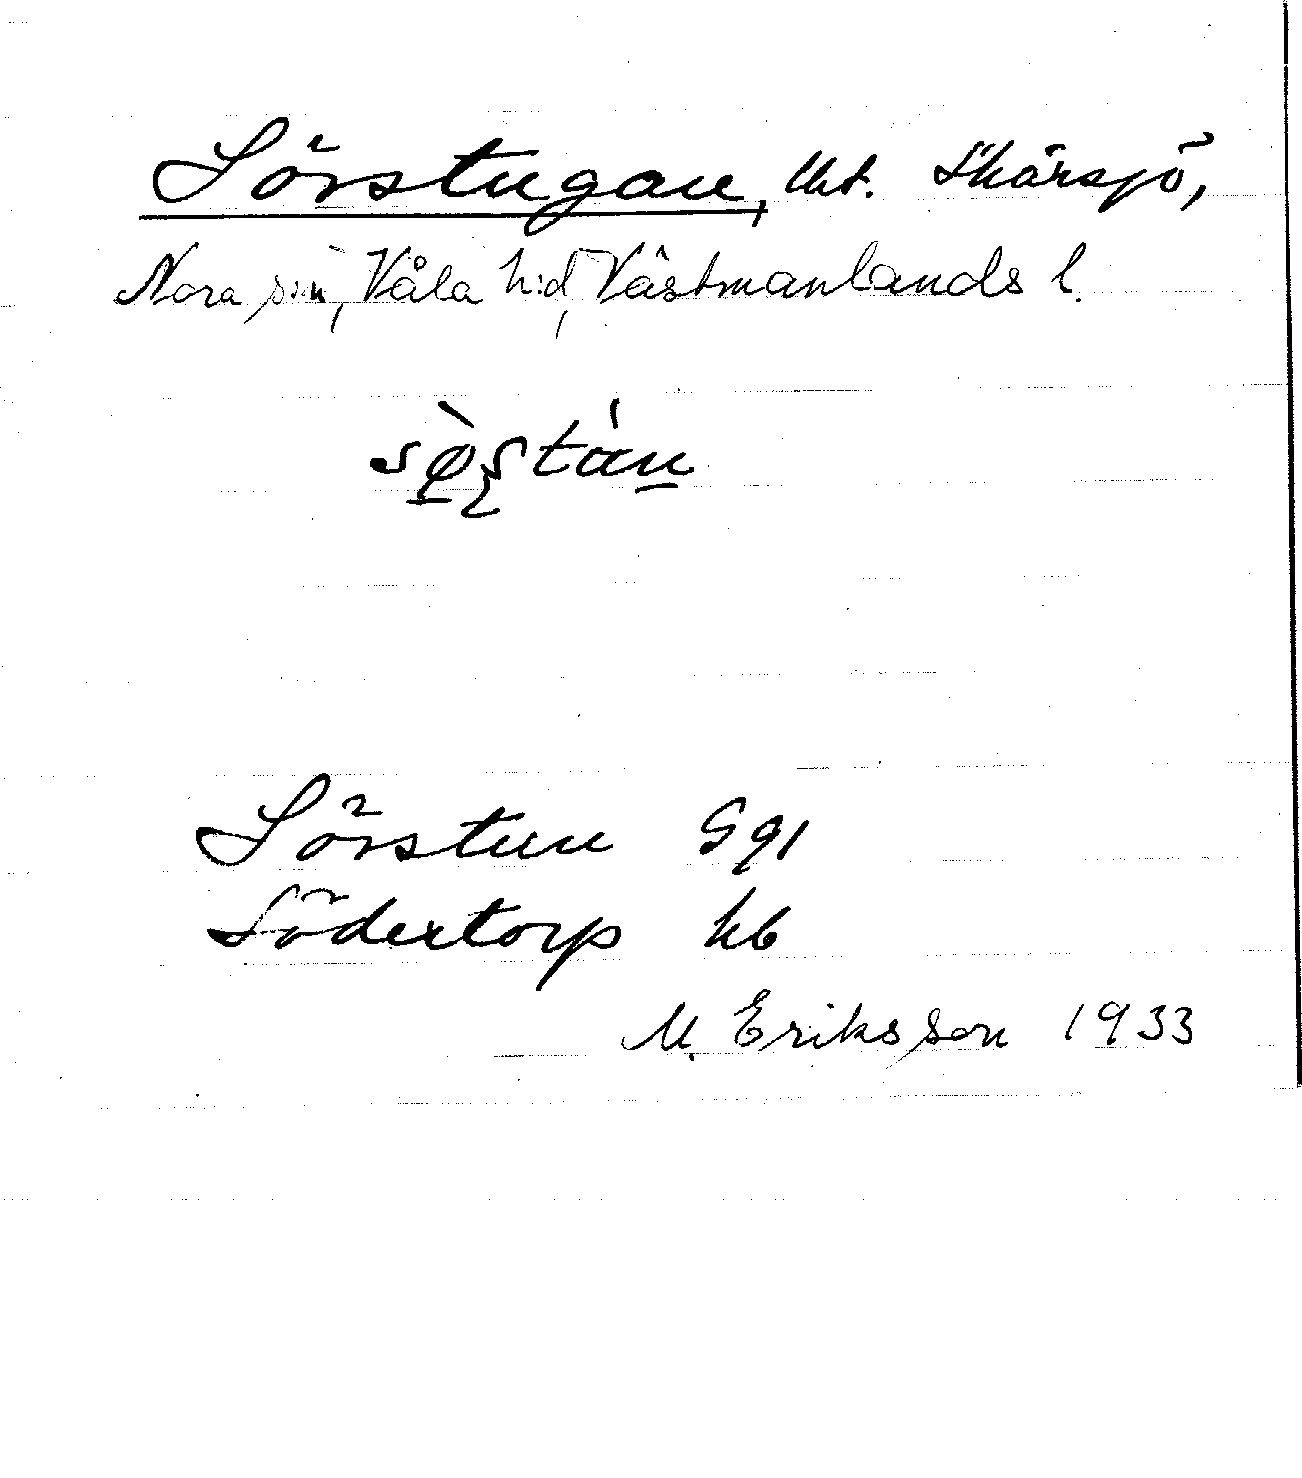 Sörstugan, tht. Skärsjö,
Nora s:n, Våla h:d, Västmanlands l.
Sörstun Sgl
Södertorp kb
M. Eriksson 1933